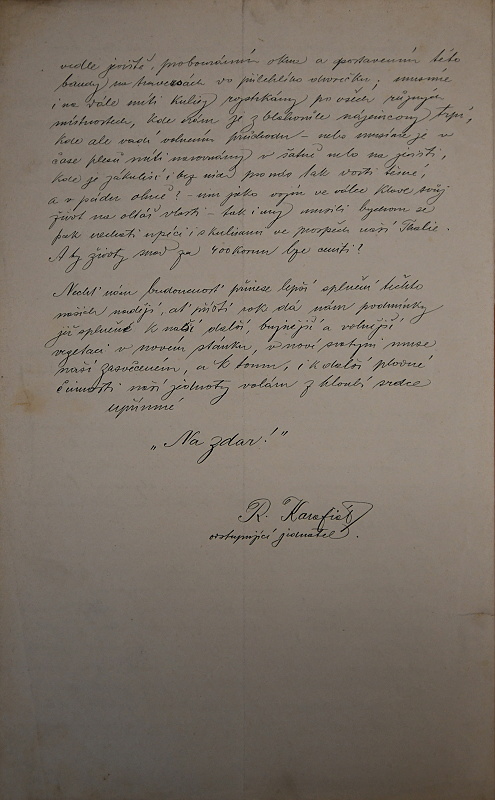 vedle jeviště, probouráním okna a postavením této
boudy na traversách do přilehlého dvorečku, musíme
i na dále míti kulisy roztrkány po všech různých
místnostech, kde nám je z blahovůle nájemcovy trpí,
kde ale vadí volnému průchodu – nebo musíme je v
čase plesů míti narovnány v šatně nebo na jevišti,
kde je zákulisí i bez nich pro nás tak dosti těsné,
a v pádu ohně? – um jako vojín ve válce klade svůj
život na oltář vlasti – tak i my musili bychom se
pak nechati upéci s kulisami ve prospěch naší Thalie.
A ty životy snad za 400 korun lze ceniti?
Nechť nám budoucnost přinese lepší splnění těchto
našich nadějí, ať příští rok dá nám podmínky
již splněné k naší další, bujnější a volnější
vegetaci v novém stánku, v nové svatyni muse
naší zasvěceném, a k tomu, i k další plodné
činnosti naší jednoty volám z hloubi srdce
upřímné
„Na zdar!“
R. Karafiát
odstupující jednatel.